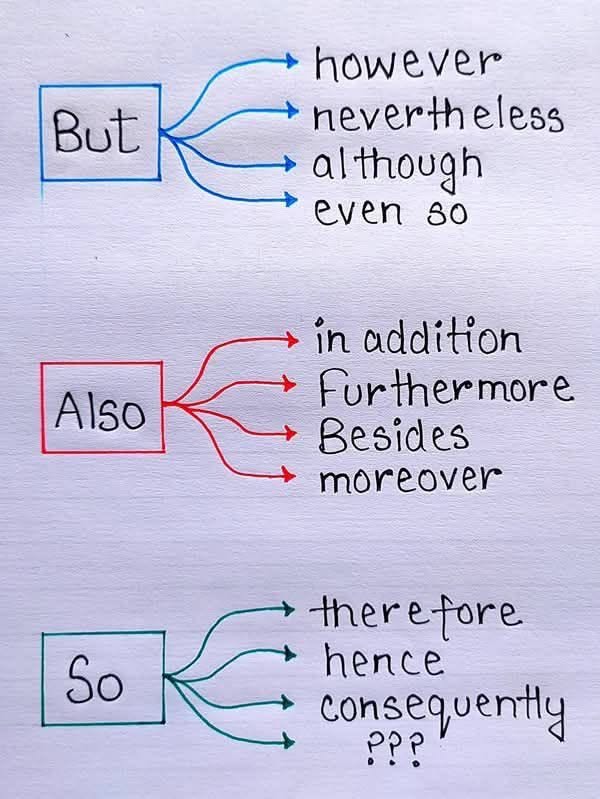 But
however
nevertheless
although
even so
Also
in addition
Furthermore
Besides
moreover
So
therefore
hence
consequently
???